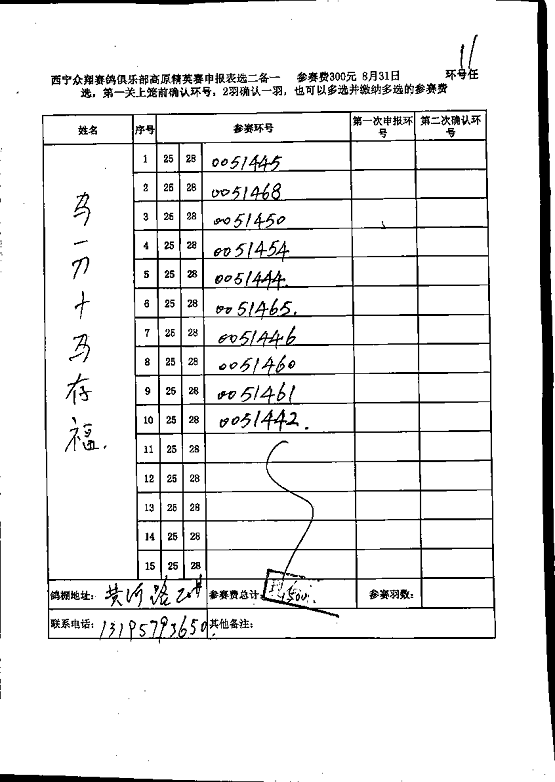 11
西宁众翔赛鸽俱乐部高原精英赛申报表选二备一 参赛费300元 8月31日 环号任
选，第一关上笼前确认环号，2羽确认一羽，也可以多选并缴纳多选的参赛费
姓名 序号 参赛环号 第一次申报环号 第二次确认环号
马一刀十马存福.
1 25 28 0051445
2 25 28 0051468
3 25 28 0051450
4 25 28 0051454
5 25 28 0051444.
6 25 28 0051465.
7 25 28 0051446
8 25 28 0051460
9 25 28 0051461
10 25 28 0051442.
11 25 28
12 25 28
13 25 28
14 25 28
15 25 28
鸽棚地址： 黄河路 参赛费总计： 1500. 参赛羽数：
联系电话： 13195793650. 其他备注：